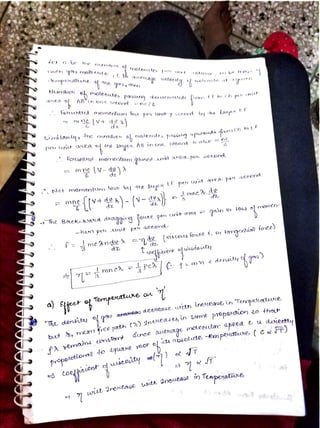 let n be the number of molecules per unit volume, m be mass of
each gas molecule, c the average velocity of molecule at given
temperature of the gas, then
Number of molecules passing downwards from EF to CD per unit
area of AB in one second = nc/6
∴ Forward momentum lost per unit area per second by the layer EF
= mnc/6 (v + dv/dz λ)
Similarly, the number of molecules passing upwards from CD to EF
per unit area of the layer AB in one second is also = nc/6
∴ Forward momentum gained unit area per second
= mnc/6 (v - dv/dz λ)
∴ Net momentum lost by the layer EF per unit area per second
= mnc/6 [(v + dv/dz λ) - (v - dv/dz λ)] = 1/3 mnc λ dv/dz
∴ The Backward dragging force per unit area = gain or loss of momen-
-tum per unit per second.
∴ F = 1/3 mcλn dv/dz = η dv/dz (viscous force F, or tangential force)
coefficient of viscosity
⇒ η = 1/3 mncλ = 1/3 ρcλ (∵ ρ = mn = density of gas)
a) Effect of Temperature on 'η'
The density of gas decrease with increase in Temperature
but the mean free path (λ) increases in same proportion so that
ρλ remains constant. Since average molecular speed c is directly
proportional to square root of its absolute temperature (c ∝ √T)
⇒ coefficient of viscosity (η) ∝ √T
⇒ η ∝ √T
⇒ η will Increase with Increase in Temperature